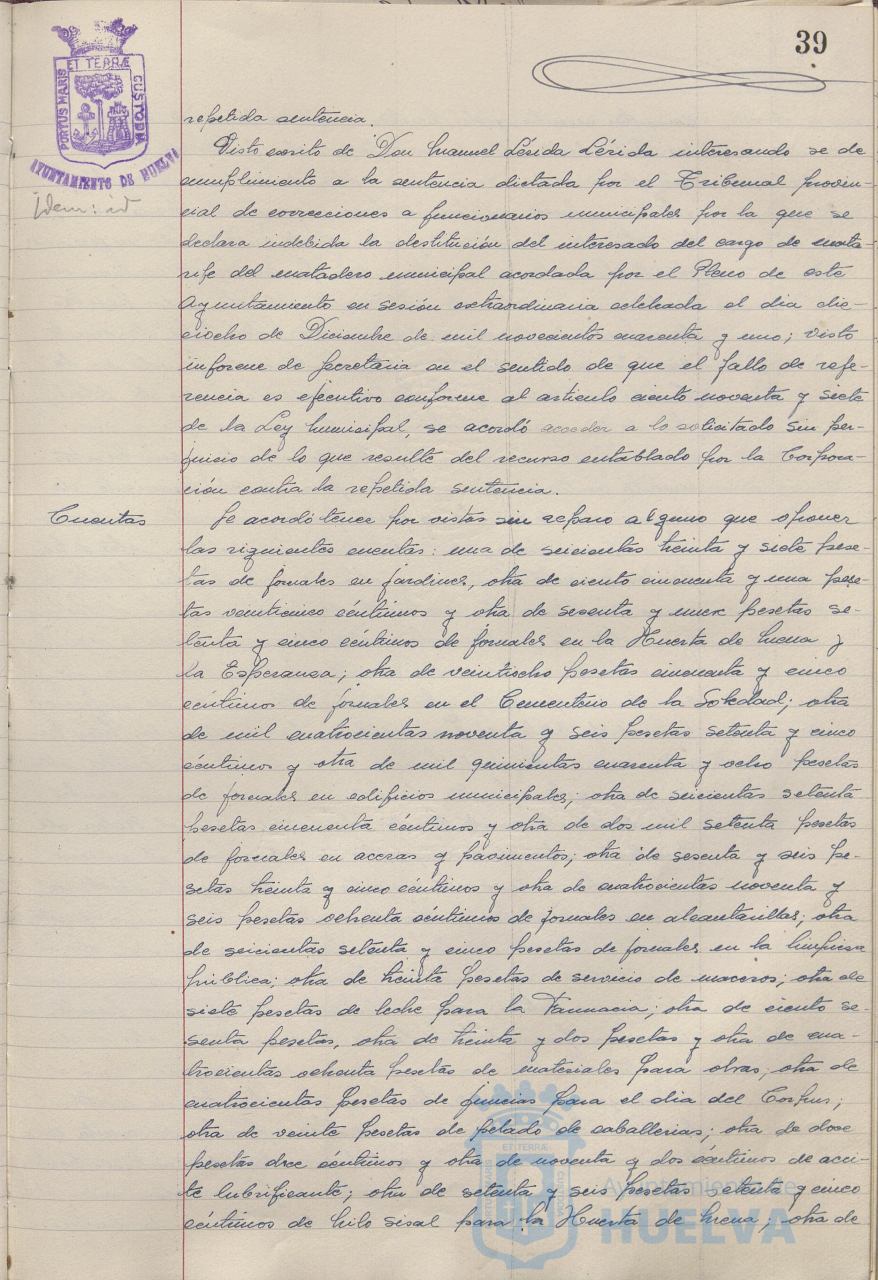 39
ET TERRÆ
PORTUS MARIS
CUSTODIA
AYUNTAMIENTO DE HUELVA
repetida sentencia.
Idem: id
Visto escrito de Don Manuel Lérida Lérida interesando se de
cumplimiento a la sentencia dictada por el Tribunal provin-
cial de correcciones a funcionarios municipales por la que se
declara indebida la destitución del interesado del cargo de mata-
rife del matadero municipal acordada por el Pleno de este
Ayuntamiento en sesión extraordinaria celebrada el dia die-
ciocho de Diciembre de mil novecientos cuarenta y uno; visto
informe de Secretaria en el sentido de que el fallo de refe-
rencia es ejecutivo conforme al articulo ciento noventa y siete
de la Ley Municipal, se acordó acceder a lo solicitado sin per-
juicio de lo que resulte del recurso entablado por la Corpora-
ción contra la repetida sentencia.
Cuentas
Se acordó tener por vistas sin reparo alguno que oponer
las siguientes cuentas: una de seicientas treinta y siete pese-
tas de jornales en jardines, otra de ciento cincuenta y una pese-
tas venticinco céntimos y otra de sesenta y nueve pesetas se-
tenta y cinco céntimos de jornales en la Huerta de Mena y
la Esperanza; otra de veintiocho pesetas cincuenta y cinco
céntimos de jornales en el Cementerio de la Soledad; otra
de mil cuatrocientas noventa y seis pesetas setenta y cinco
céntimos y otra de mil quinientas cuarenta y ocho pesetas
de jornales en edificios municipales; otra de seicientas setenta
pesetas cincuenta céntimos y otra de dos mil setenta pesetas
de jornales en aceras y pavimentos; otra de sesenta y seis pe-
setas treinta y cinco céntimos y otra de cuatrocientas noventa y
seis pesetas ochenta céntimos de jornales en alcantarillas; otra
de seicientas setenta y cinco pesetas de jornales en la limpieza
pública; otra de treinta pesetas de servicio de maceros; otra de
siete pesetas de leche para la Farmacia; otra de ciento se-
senta pesetas, otra de treinta y dos pesetas y otra de cua-
trocientas ochenta pesetas de materiales para obras; otra de
cuatrocientas pesetas de juncias para el dia del Corpus;
otra de veinte pesetas de pelado de caballerias; otra de doce
pesetas doce céntimos y otra de noventa y dos céntimos de acei-
te lubrificante; otra de setenta y seis pesetas setenta y cinco
céntimos de hilo sisal para la Huerta de Mena; otra de
Ayuntamiento de
HUELVA